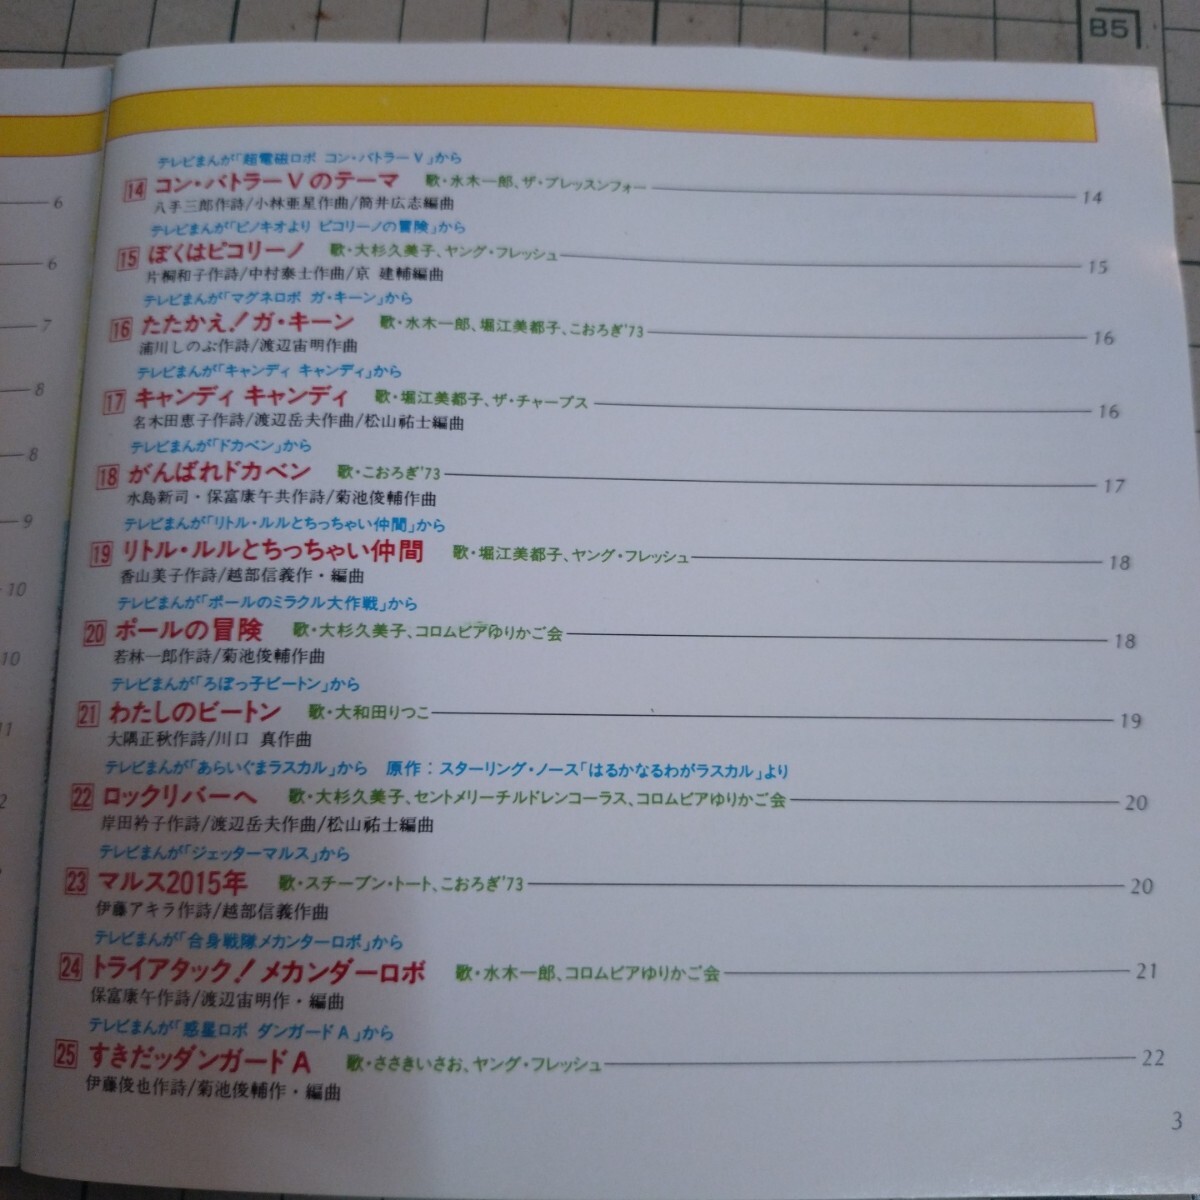 B5
6
6
7
8
8
9
10
10
11
2
テレビまんが「超電磁ロボ コン・バトラーV」から
14 コン・バトラーVのテーマ 歌・水木一郎、ザ・ブレッスンフォー 14
八手三郎作詩/小林亜星作曲/筒井広志編曲
テレビまんが「ピノキオより ピコリーノの冒険」から
15 ぼくはピコリーノ 歌・大杉久美子、ヤング・フレッシュ 15
片桐和子作詩/中村泰士作曲/京 建輔編曲
テレビまんが「マグネロボ ガ・キーン」から
16 たたかえ!ガ・キーン 歌・水木一郎、堀江美都子、こおろぎ'73 16
浦川しのぶ作詩/渡辺宙明作曲
テレビまんが「キャンディ キャンディ」から
17 キャンディ キャンディ 歌・堀江美都子、ザ・チャープス 16
名木田恵子作詩/渡辺岳夫作曲/松山祐士編曲
テレビまんが「ドカベン」から
18 がんばれドカベン 歌・こおろぎ'73 17
水島新司・保富康午共作詩/菊池俊輔作曲
テレビまんが「リトル・ルルとちっちゃい仲間」から
19 リトル・ルルとちっちゃい仲間 歌・堀江美都子、ヤング・フレッシュ 18
香山美子作詩/越部信義作・編曲
テレビまんが「ポールのミラクル大作戦」から
20 ポールの冒険 歌・大杉久美子、コロムビアゆりかご会 18
若林一郎作詩/菊池俊輔作曲
テレビまんが「ろぼっ子ビートン」から
21 わたしのビートン 歌・大和田りつこ 19
大隅正秋作詩/川口 真作曲
テレビまんが「あらいぐまラスカル」から 原作:スターリング・ノース「はるかなるわがラスカル」より
22 ロックリバーへ 歌・大杉久美子、セントメリーチルドレンコーラス、コロムビアゆりかご会 20
岸田衿子作詩/渡辺岳夫作曲/松山祐士編曲
テレビまんが「ジェッターマルス」から
23 マルス2015年 歌・スチーブン・トート、こおろぎ'73 20
伊藤アキラ作詩/越部信義作曲
テレビまんが「合身戦隊メカンダーロボ」から
24 トライアタック!メカンダーロボ 歌・水木一郎、コロムビアゆりかご会 21
保富康午作詩/渡辺宙明作・編曲
テレビまんが「惑星ロボ ダンガードA」から
25 すきだッダンガードA 歌・ささきいさお、ヤング・フレッシュ 22
伊藤俊也作詩/菊池俊輔作・編曲
3